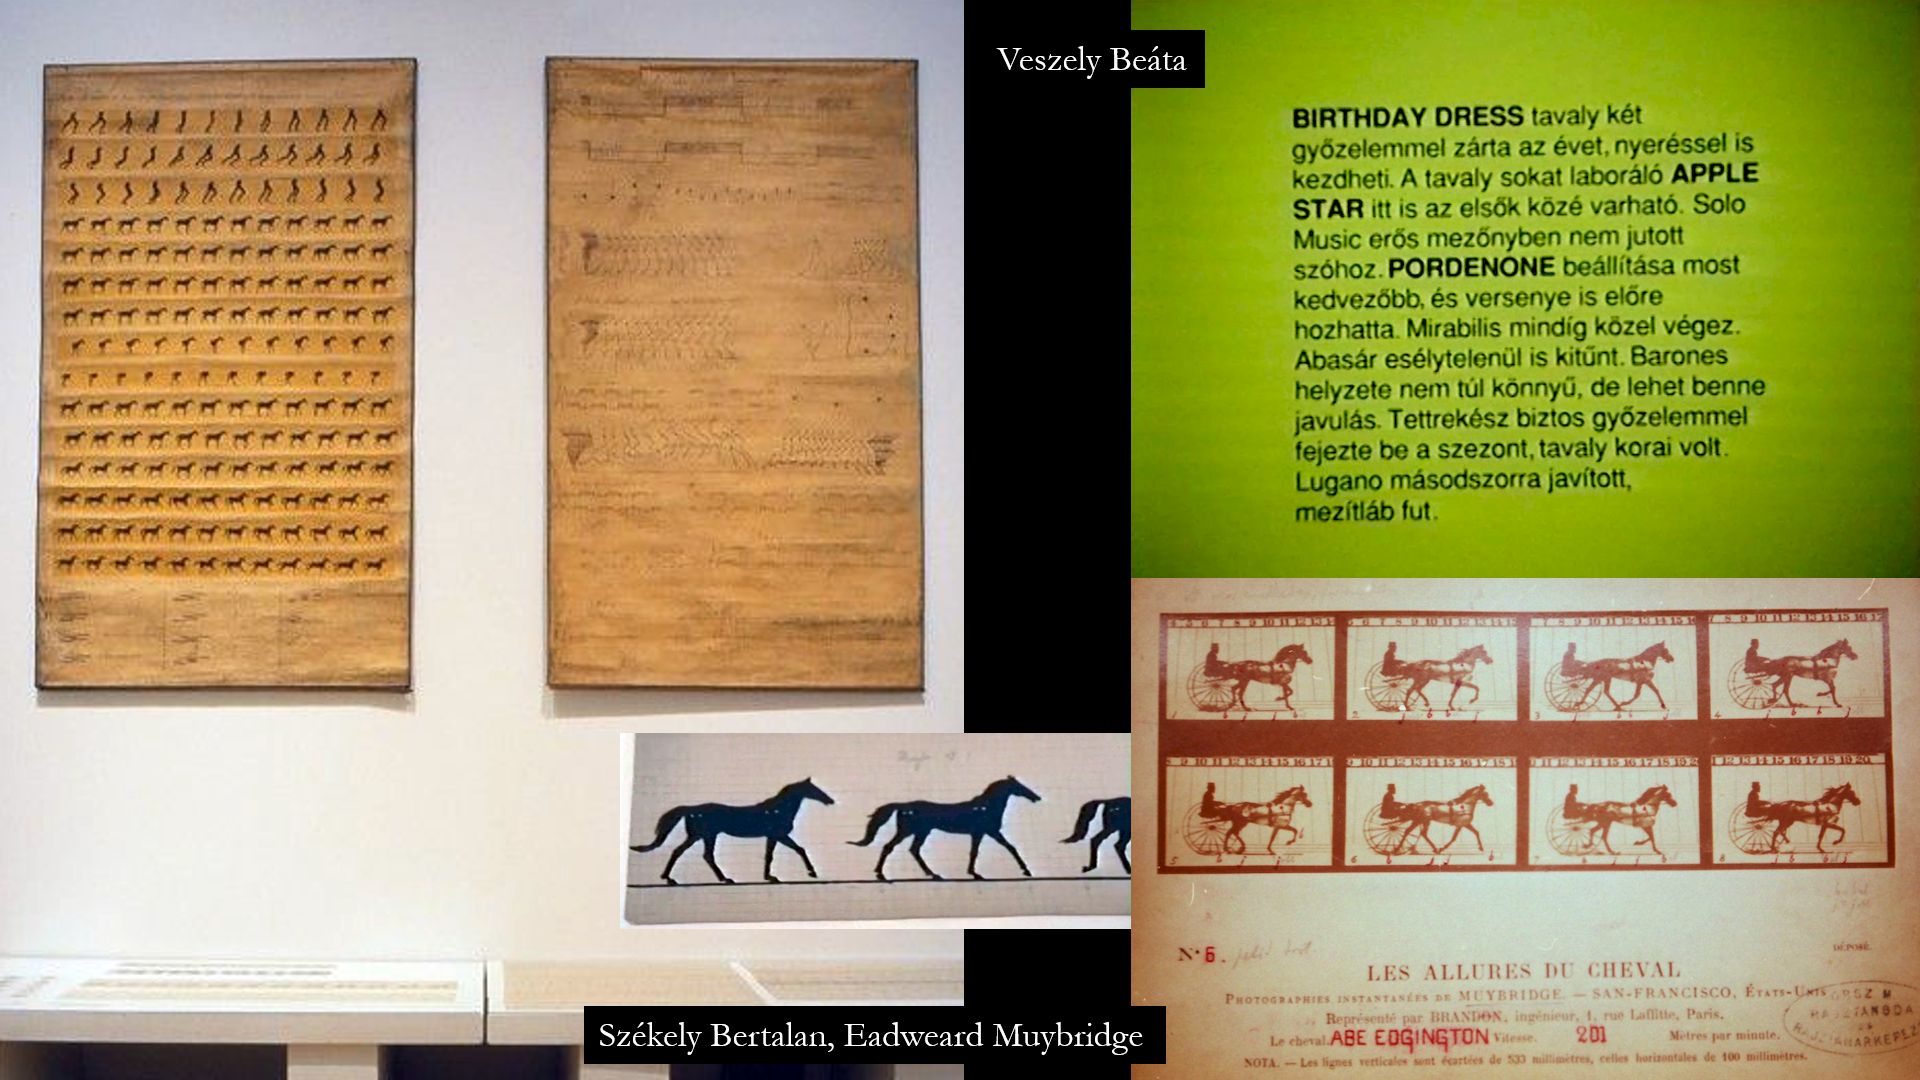 Veszely Beáta
BIRTHDAY DRESS tavaly két
győzelemmel zárta az évet, nyeréssel is
kezdheti. A tavaly sokat laboráló APPLE
STAR itt is az elsők közé varható. Solo
Music erős mezőnyben nem jutott
szóhoz. PORDENONE beállítása most
kedvezőbb, és versenye is előre
hozhatta. Mirabilis mindíg közel végez.
Abasár esélytelenül is kitűnt. Barones
helyzete nem túl könnyű, de lehet benne
javulás. Tettrekész biztos győzelemmel
fejezte be a szezont, tavaly korai volt.
Lugano másodszorra javított,
mezítláb fut.
N° 6.
DÉPOSÉ.
LES ALLURES DU CHEVAL
PHOTOGRAPHIES INSTANTANÉES DE MUYBRIDGE. — SAN-FRANCISCO, ÉTATS-UNIS
Représenté par BRANDON, ingénieur, 1, rue Laffitte, Paris.
Le cheval ABE EDGINGTON Vitesse. 201 Mètres par minute.
NOTA. — Les lignes verticales sont écartées de 533 millimètres, celles horizontales de 100 millimètres.
Székely Bertalan, Eadweard Muybridge